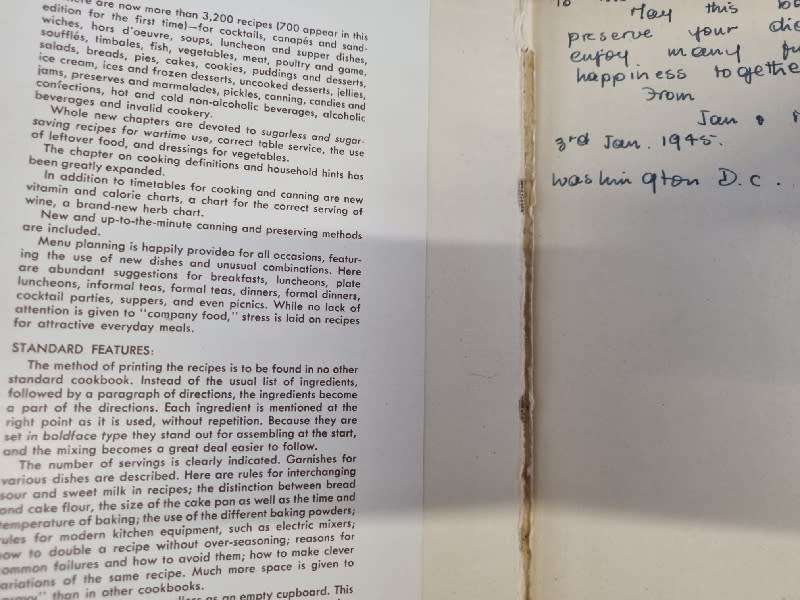 are now more than 3,200 recipes (700 appear in this
edition for the first time)—for cocktails, canapés and sand-
wiches, hors d'oeuvre, soups, luncheon and supper dishes,
soufflés, timbales, fish, vegetables, meat, poultry and game,
salads, breads, pies, cakes, cookies, puddings and desserts,
ice cream, ices and frozen desserts, uncooked desserts, jellies,
jams, preserves and marmalades, pickles, canning, candies and
confections, hot and cold non-alcoholic beverages, alcoholic
beverages and invalid cookery.
Whole new chapters are devoted to sugarless and sugar-
saving recipes for wartime use, correct table service, the use
of leftover food, and dressings for vegetables.
The chapter on cooking definitions and household hints has
been greatly expanded.
In addition to timetables for cooking and canning are new
vitamin and calorie charts, a chart for the correct serving of
wine, a brand-new herb chart.
New and up-to-the-minute canning and preserving methods
are included.
Menu planning is happily provided for all occasions, featur-
ing the use of new dishes and unusual combinations. Here
are abundant suggestions for breakfasts, luncheons, plate
luncheons, informal teas, formal teas, dinners, formal dinners,
cocktail parties, suppers, and even picnics. While no lack of
attention is given to "company food," stress is laid on recipes
for attractive everyday meals.
STANDARD FEATURES:
The method of printing the recipes is to be found in no other
standard cookbook. Instead of the usual list of ingredients,
followed by a paragraph of directions, the ingredients become
a part of the directions. Each ingredient is mentioned at the
right point as it is used, without repetition. Because they are
set in boldface type they stand out for assembling at the start,
and the mixing becomes a great deal easier to follow.
The number of servings is clearly indicated. Garnishes for
various dishes are described. Here are rules for interchanging
sour and sweet milk in recipes; the distinction between bread
and cake flour, the size of the cake pan as well as the time and
temperature of baking; the use of the different baking powders;
rules for modern kitchen equipment, such as electric mixers;
how to double a recipe without over-seasoning; reasons for
common failures and how to avoid them; how to make clever
variations of the same recipe. Much more space is given to
than in other cookbooks.
as an empty cupboard. This
May this
preserve your
enjoy many
happiness together
From
Jan &
3rd Jan. 1945.
Washington D.C.